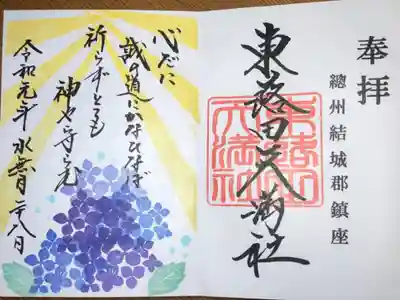 奉拝
總州結城郡鎮座
東蕗田天満社
東蕗田天満社
心だに
誠の道にかなひなば
祈らずとても
神や守らむ
令和元年 水無月 二十八日